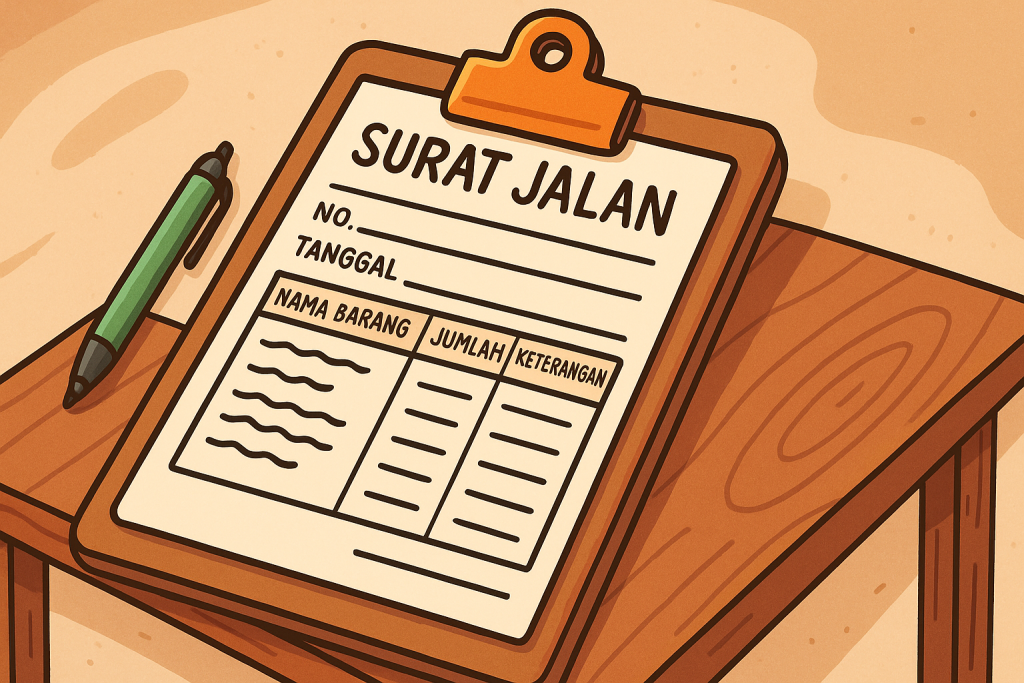 SURAT JALAN
NO.
TANGGAL
NAMA BARANG JUMLAH KETERANGAN